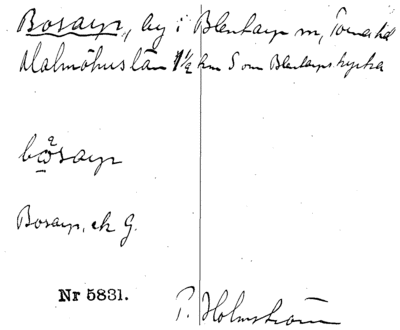 Bosarp, by i Blentarp sn, Torna hd
Malmöhus län 1½ km S om Blentarps kyrka
Bosarp, ek G.
Nr 5831.
P. Holmström